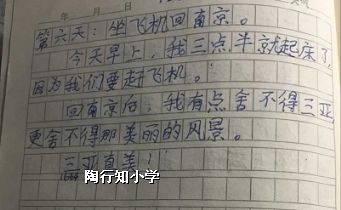 年 月 日
第六天：坐飞机回南京。
今天早上，我三点半就起床了，
因为我们要赶飞机。
回南京后，我有点舍不得三亚
更舍不得那美丽的风景。
三亚真美！
陶行知小学